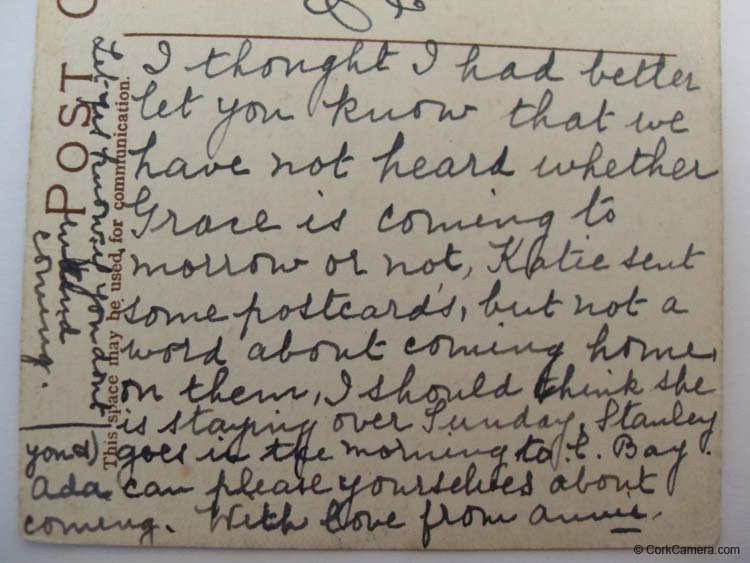 POST C
This space may be used for communication.
I thought I had better
let you know that we
have not heard whether
Grace is coming to
morrow or not, Katie sent
some postcards, but not a
word about coming home
on them, I should think she
is staying over Sunday, Stanley
goes in the morning to C. Bay.
you &
Ada can please yourselves about
coming. With love from Annie.
Let me know if you dont
coming.
© CorkCamera.com